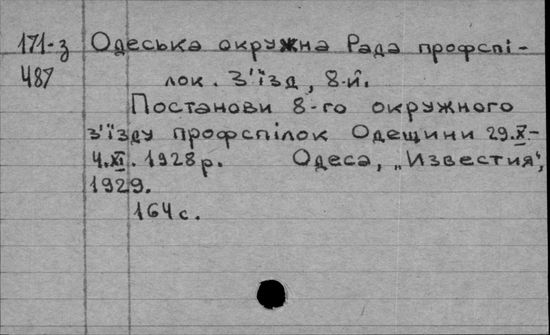 171-з Одеська окружна Рада профспі-
487 лок. З'їзд, 8-й.
Постанови 8-го окружного
з'їзду профспілок Одещини 29.X-
4.XI.1928р. Одеса, „Известия",
1929.
164с.